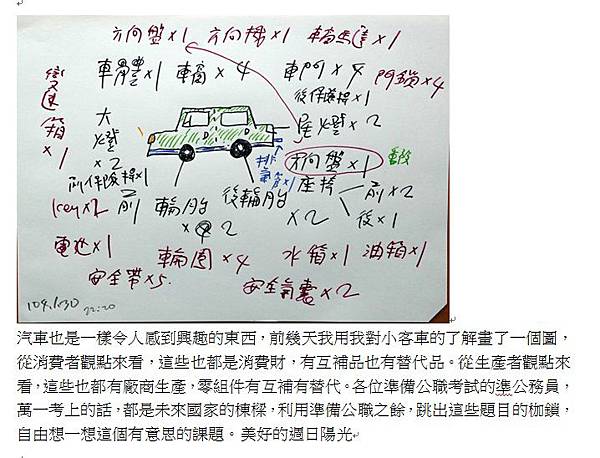 方向盤×1 方向機×1 輪馬達×1
變速箱×1
車體×1 輪窗×4 車門×4 門鎖×4
後保險桿×1
大燈×2
尾燈×2
方向盤×1 重複
排氣管×1
前保險桿×1
座椅×2
前×2
後×1
key×2
前輪胎×2
後輪胎
電池×1
輪圈×4
水箱×1 油箱×1
安全帶×5
安全氣囊×2
104.1.30
22:20
汽車也是一樣令人感到興趣的東西，前幾天我用我對小客車的了解畫了一個圖，
從消費者觀點來看，這些也都是消費財，有互補品也有替代品。從生產者觀點來
看，這些也都有廠商生產，零組件有互補有替代。各位準備公職考試的準公務員，
萬一考上的話，都是未來國家的棟樑，利用準備公職之餘，跳出這些題目的枷鎖，
自由想一想這個有意思的課題。美好的週日陽光